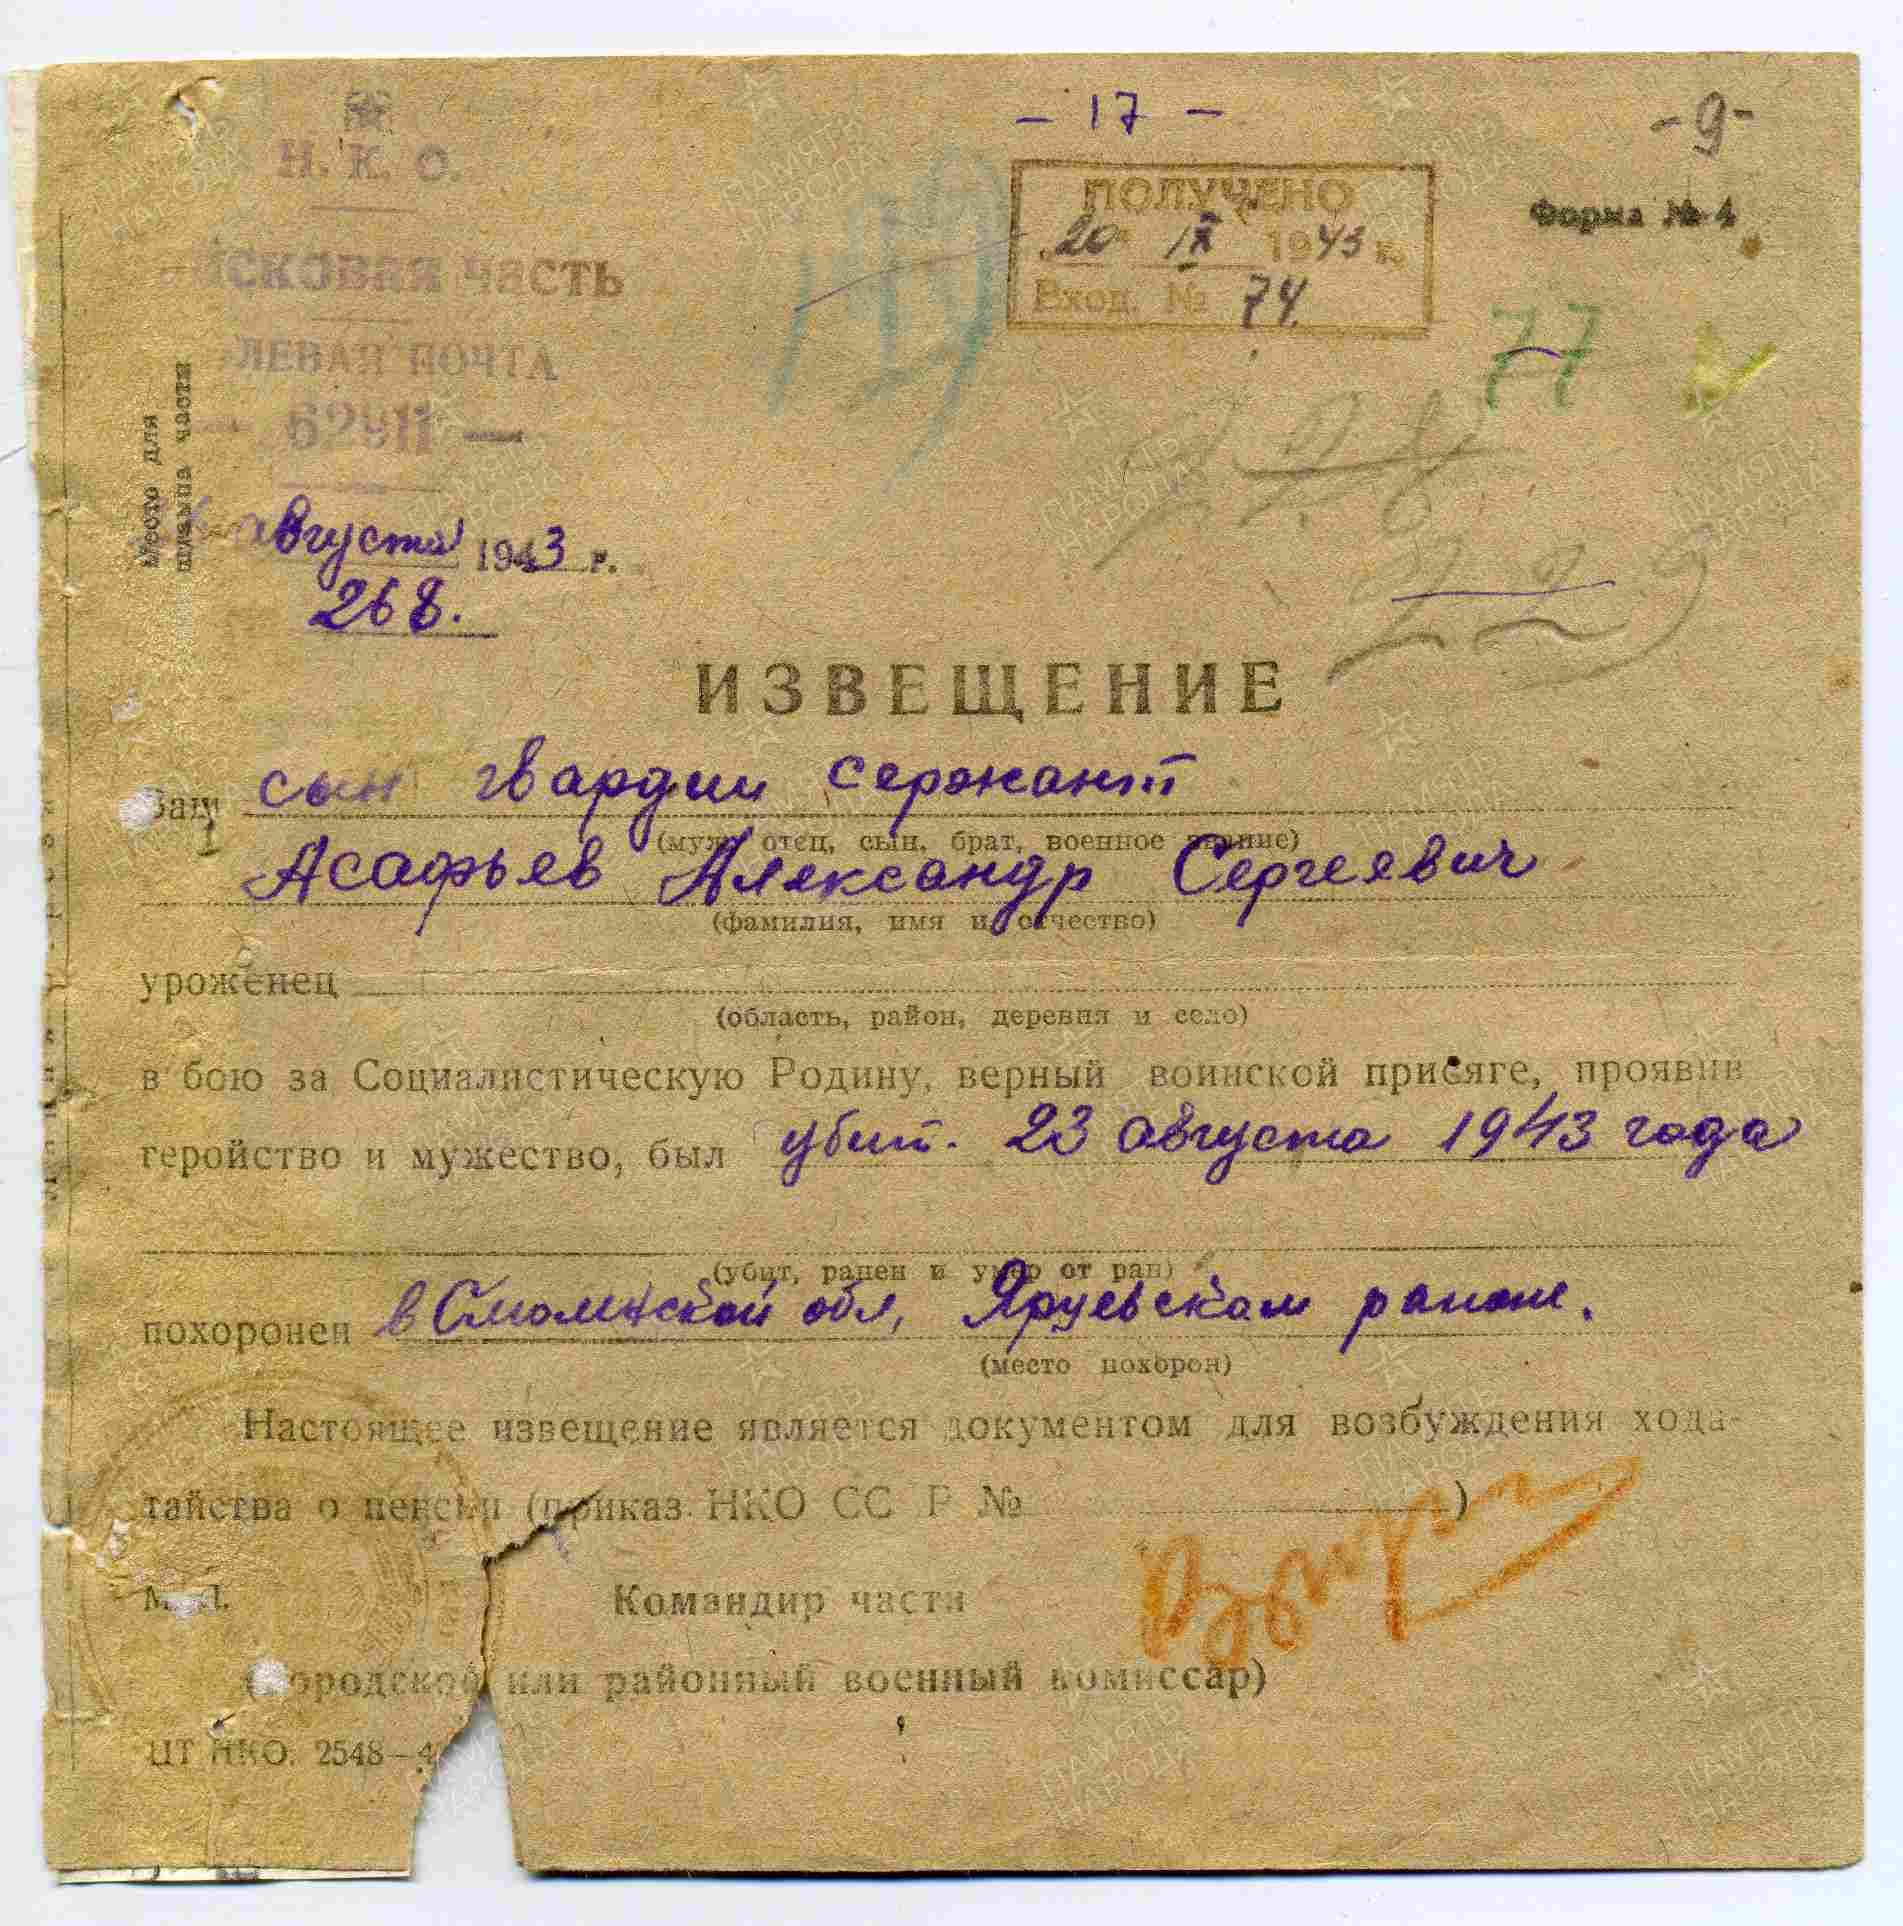 - 17 -
- 9 -
Н. К. О.
ПОЛУЧЕНО
20 IX 1943 г.
Вход. № 74
Форма № 4
йсковая часть
ЛЕВАЯ ПОЧТА
77
Место для
штампа части
августа 1943 г.
268.
ИЗВЕЩЕНИЕ
Ваш сын гвардии сержант
(муж, отец, сын, брат, военное звание)
Асафьев Александр Сергеевич
(фамилия, имя и отчество)
уроженец
(область, район, деревня и село)
в бою за Социалистическую Родину, верный воинской присяге, проявив
геройство и мужество, был убит. 23 августа 1943 года
(убит, ранен и умер от ран)
похоронен в Смоленской обл, Ярцевском районе.
(место похорон)
Настоящее извещение является документом для возбуждения хода-
тайства о пенсии (приказ НКО СС Р № )
М. П.
Командир части
(городской или районный военный комиссар)
ЦТ НКО. 2548—4
ПАМЯТЬ НАРОДА